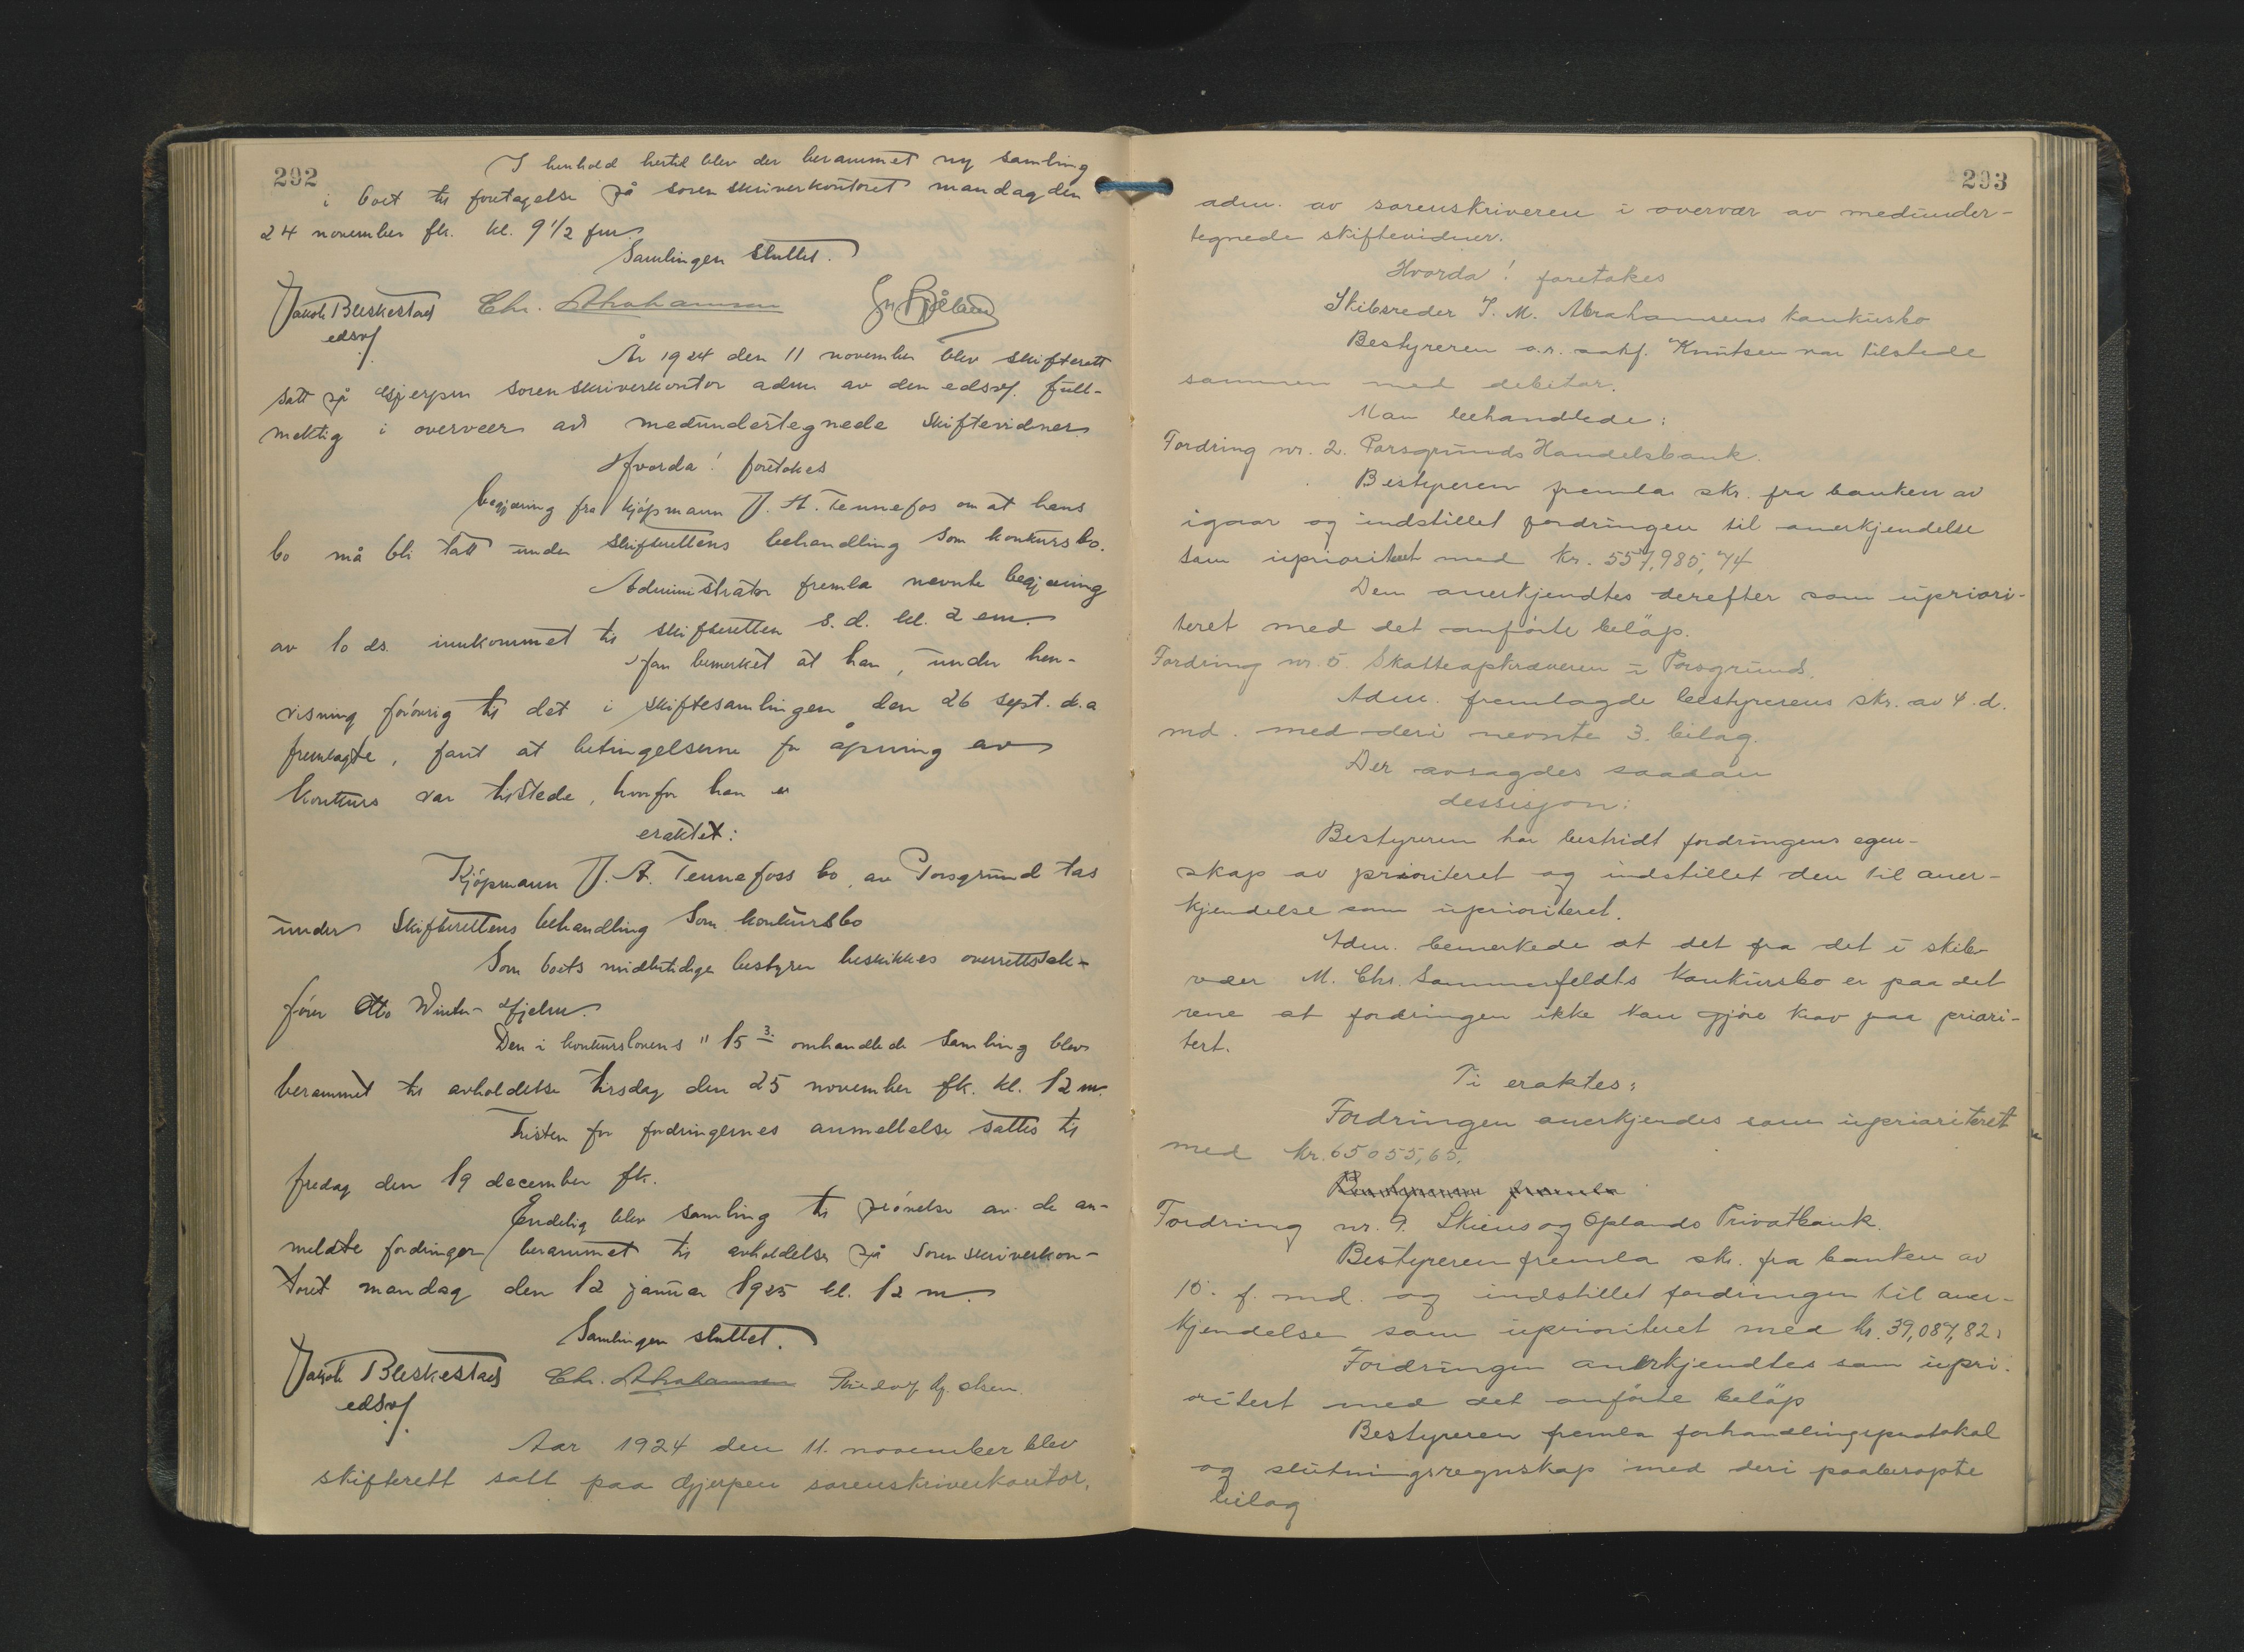 292
I henhold hertil blev der berammet ny samling
i boet til foretagelse på sorenskriverkontoret mandag den
24 november fk. kl. 9 1/2 fm.
Samlingen sluttet.
Jakob Bleskestad Chr. Abrahamsen
edsvf.
År 1924 den 11 november blev skifterett
satt på Gjerpen sorenskriverkontor adm av den edsvf. full-
mektig i overveer av medundertegnede skiftevidner.
Hvorda! foretokes
begjæring fra kjøpmann J. A. Tennefos om at hans
bo må bli tatt under skifterettens behandling som konkursbo.
Administrator fremla nevnte begjæring
av 10 ds. innkommet til skifteretten s.d. kl. 2 em.
Han bemerket at han, under hen-
visning forøvrig til det i skiftesamlingen den 26 sept. d.a
fremlagte, fant at betingelserne for åpning av
konkurs var tilstede, hvorfor han er
eraktet:
Kjøpmann J. A. Tennefoss bo, av Porsgrund tas
under skifterettens behandling som konkursbo
Som boets midlertidige bestyrer beskikkes overrettssak-
fører Otto Winter-Hjelm.
Den i konkurslovens § 15 3. omhandlede samling blev
berammet til avholdelse tirsdag den 25 november fk. kl. 12 m.
Fristen for fordringernes anmeldelse sattes til
fredag den 19 december fk.
Endelig blev samling til prøvelse av de an-
meldte fordringer berammet til avholdelse på sorenskriverkon-
toret mandag den 12 januar 1925 kl. 12 m.
Samlingen sluttet.
Jakob Bleskestad Chr. Abrahamsen
edsvf.
Aar 1924 den 11. november blev
skifterett satt paa Gjerpen sorenskriverkontor,
293
adm. av sorenskriveren i overvær av medunder-
tegnede skiftevidner.
Hvorda! foretokes
Skibsreder I. M. Abrahamsens konkursbo
Bestyreren o.r. sakf. Knutsen var tilstede
sammen med debitor.
Man behandlede:
Fordring nr. 2. Porsgrunds Handelsbank.
Bestyreren fremla skr. fra banken av
igaar og indstillet fordringen til anerkjendelse
som uprioritert med kr. 557,985,74
Den anerkjendtes derefter som upriori-
teret med det anførte beløp.
Fordring nr. 5. Skatteopkræveren i Porsgrund.
Adm. fremlagde bestyrerens skr. av 4. d.
md. med deri nevnte 3. bilag.
Der avsagdes saadan
dessisjon:
Bestyreren har bestridt fordringens egen-
skap av prioriteret og indstillet den til aner-
kjendelse som uprioriteret.
Adm. bemerkede at det fra det i skibs-
væer M. Chr. Sommerfeldts konkursbo er paa det
rene at fordringen ikke kan gjøre krav paa priori-
tert.
Ti eraktes:
Fordringen anerkjendes som uprioriteret
med kr. 65055,65.
Bestyreren fremla
Fordring nr. 9. Skiens og Oplands Privatbank.
Bestyreren fremla skr. fra banken av
15. f. md. og indstillet fordringen til aner-
kjendelse som uprioriteret med kr. 39,087,82.
Fordringen anerkjendtes som upri-
oritert med det anførte beløp
Bestyreren fremla forhandlingsprotokol
og slutningsregnskap med deri paaberopte
bilag